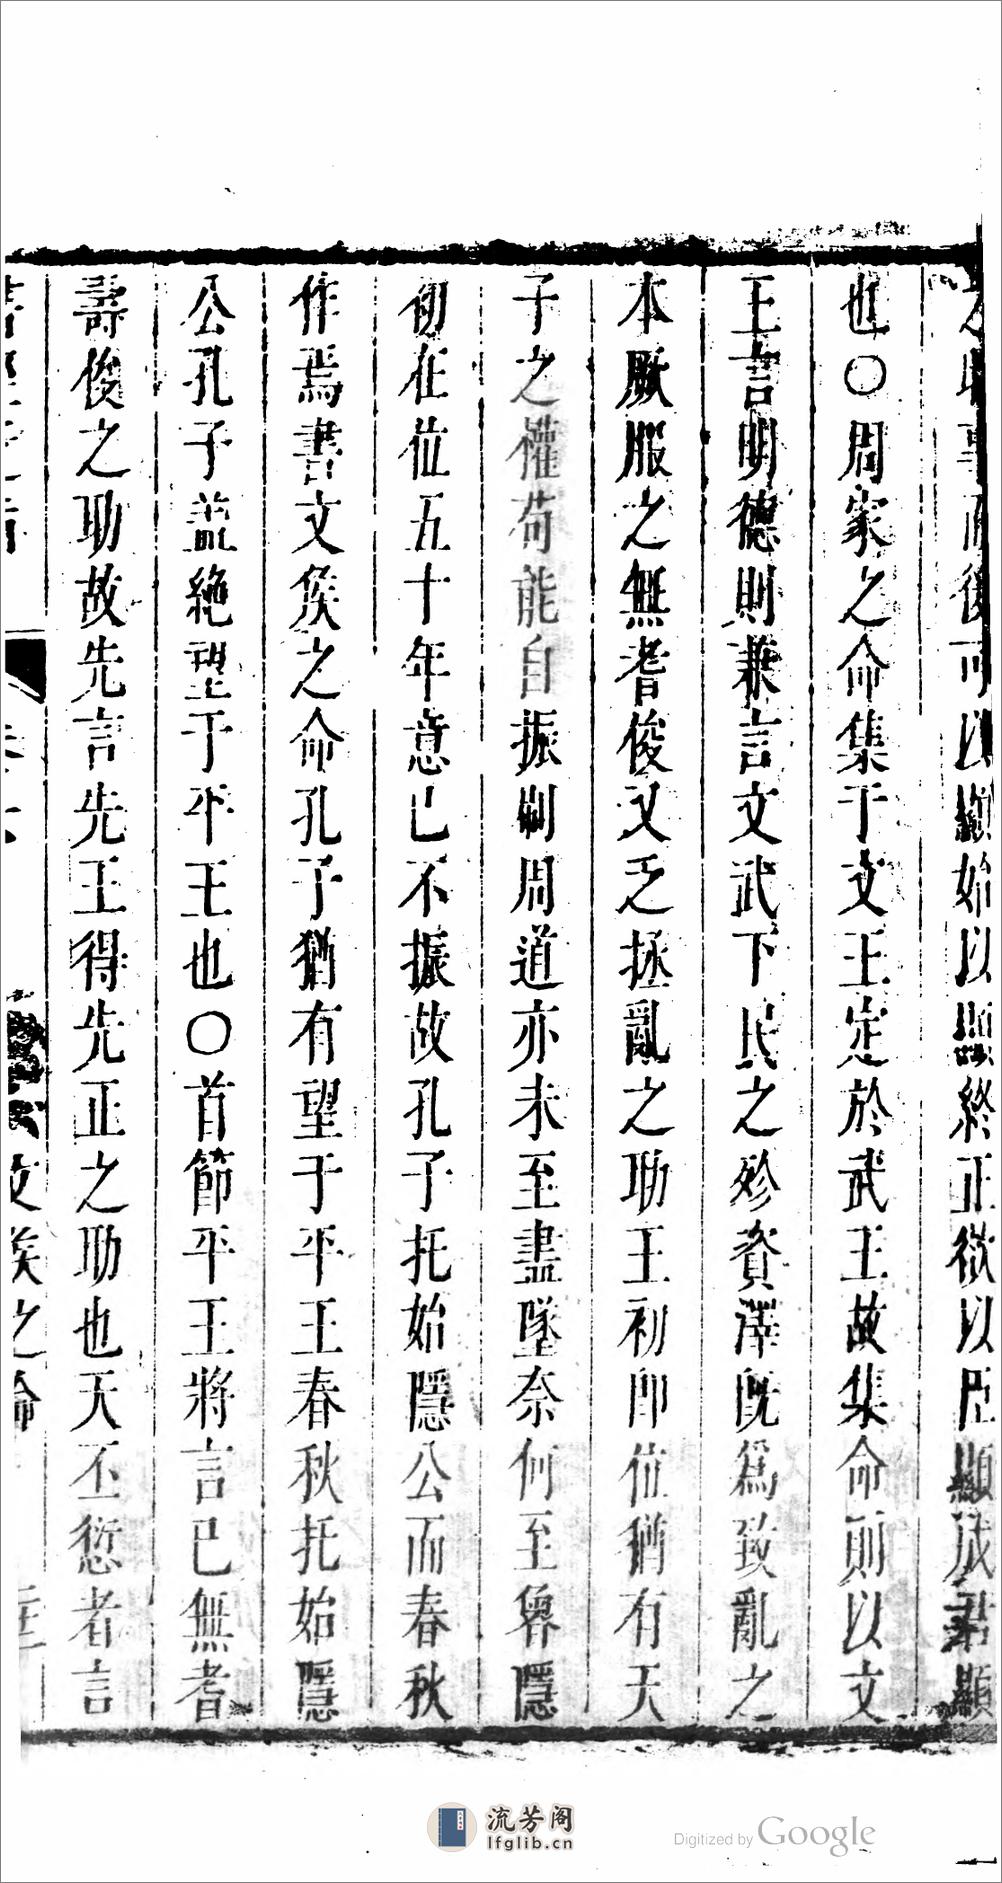 事而後可以顯始以顯終正從以臣顯成君顯
也○周家之命集于文王定於武王故集命則以文
王言明德則兼言文武下民之殄資澤既爲致亂之
本厥服之無耆俊又乏拯亂之助王初即位猶有天
子之權苟能自振刷周道亦未至盡墜奈何至魯隱
初在位五十年意已不振故孔子托始隱公而春秋
作焉書文侯之命孔子猶有望于平王春秋托始隱
公孔子蓋絶望于平王也○首節平王將言已無耆
壽俊之助故先言先王得先正之助也天丕愆者言
文侯之命
流芳阁
lfglib.cn
Digitized by Google